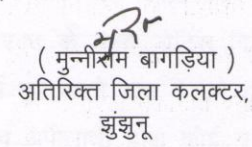 ( मुन्नीराम बागड़िया )
अतिरिक्त जिला कलक्टर,
झुंझुनू